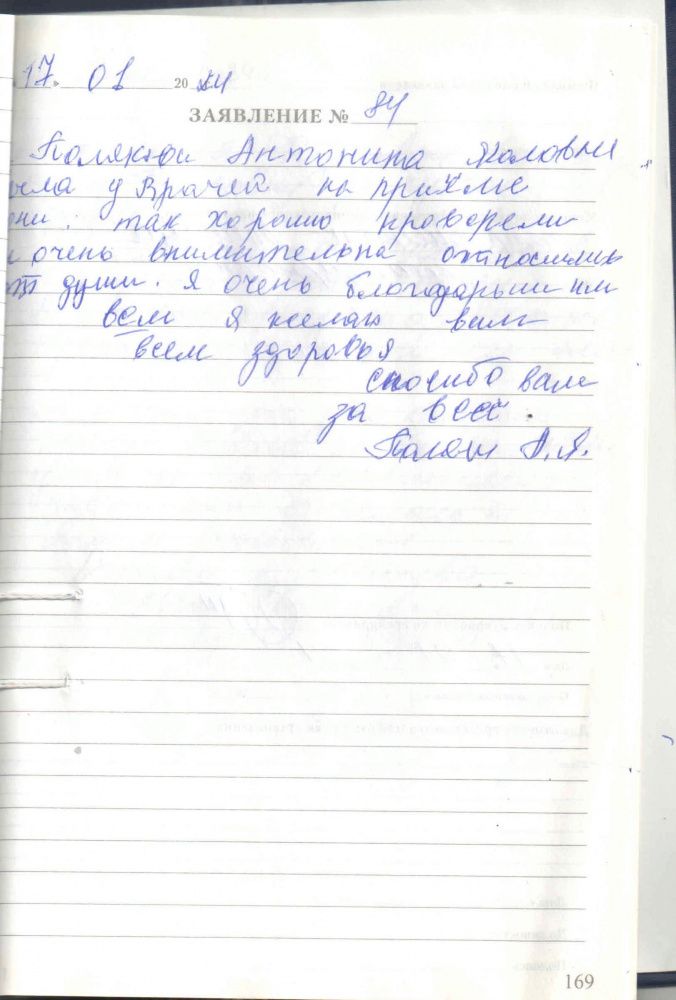 17. 01 2024
ЗАЯВЛЕНИЕ № 84
Антонина
у Врачей на приёме
они. так хорошо проверели
и очень внимительна относились
от души. я очень благодарьна им
всем я желаю вам
всем здоровья
спосибо вам
за всё.
А.Я.
169